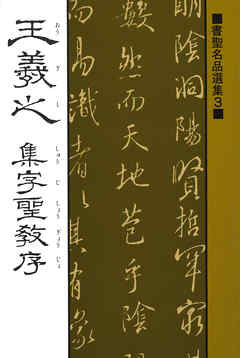 ■書聖名品選集3■
明陰洞陽賢哲罕窮
數然而天地苞乎陰
而易識者以其有象
おう ぎ し
王羲之
しゅう じ しょう ぎょう じょ
集字聖教序